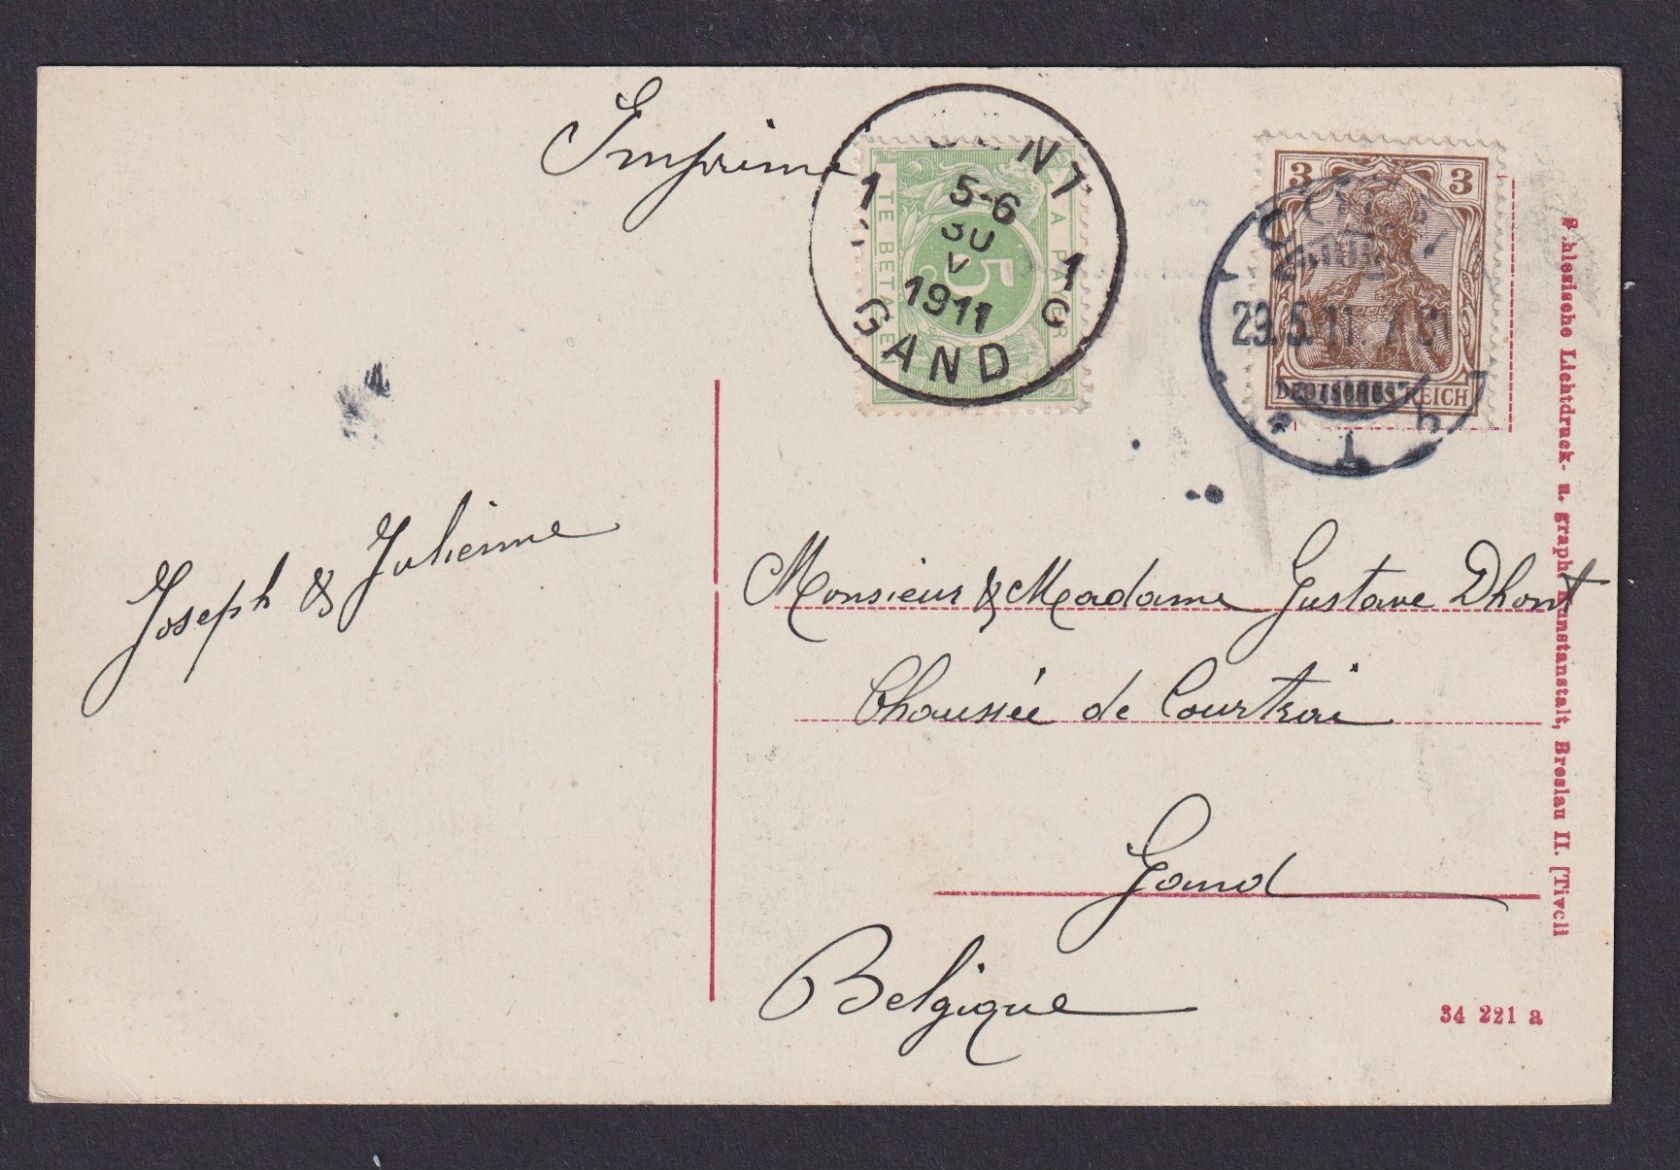 Imprimé
GENT
1 5-6 1
30
V
1911
GAND
A PAYER
TE BETALEN
5
3 3
DEUTSCHES REICH
29.5.11. 7
1 b
Joseph & Julienne
Monsieur & Madame Gustave Dhont
Chaussée de Courtrai
Gand
Belgique
Schlesische Lichtdruck- u. graph. Kunstanstalt, Breslau II. [Tivoli
34 221 a